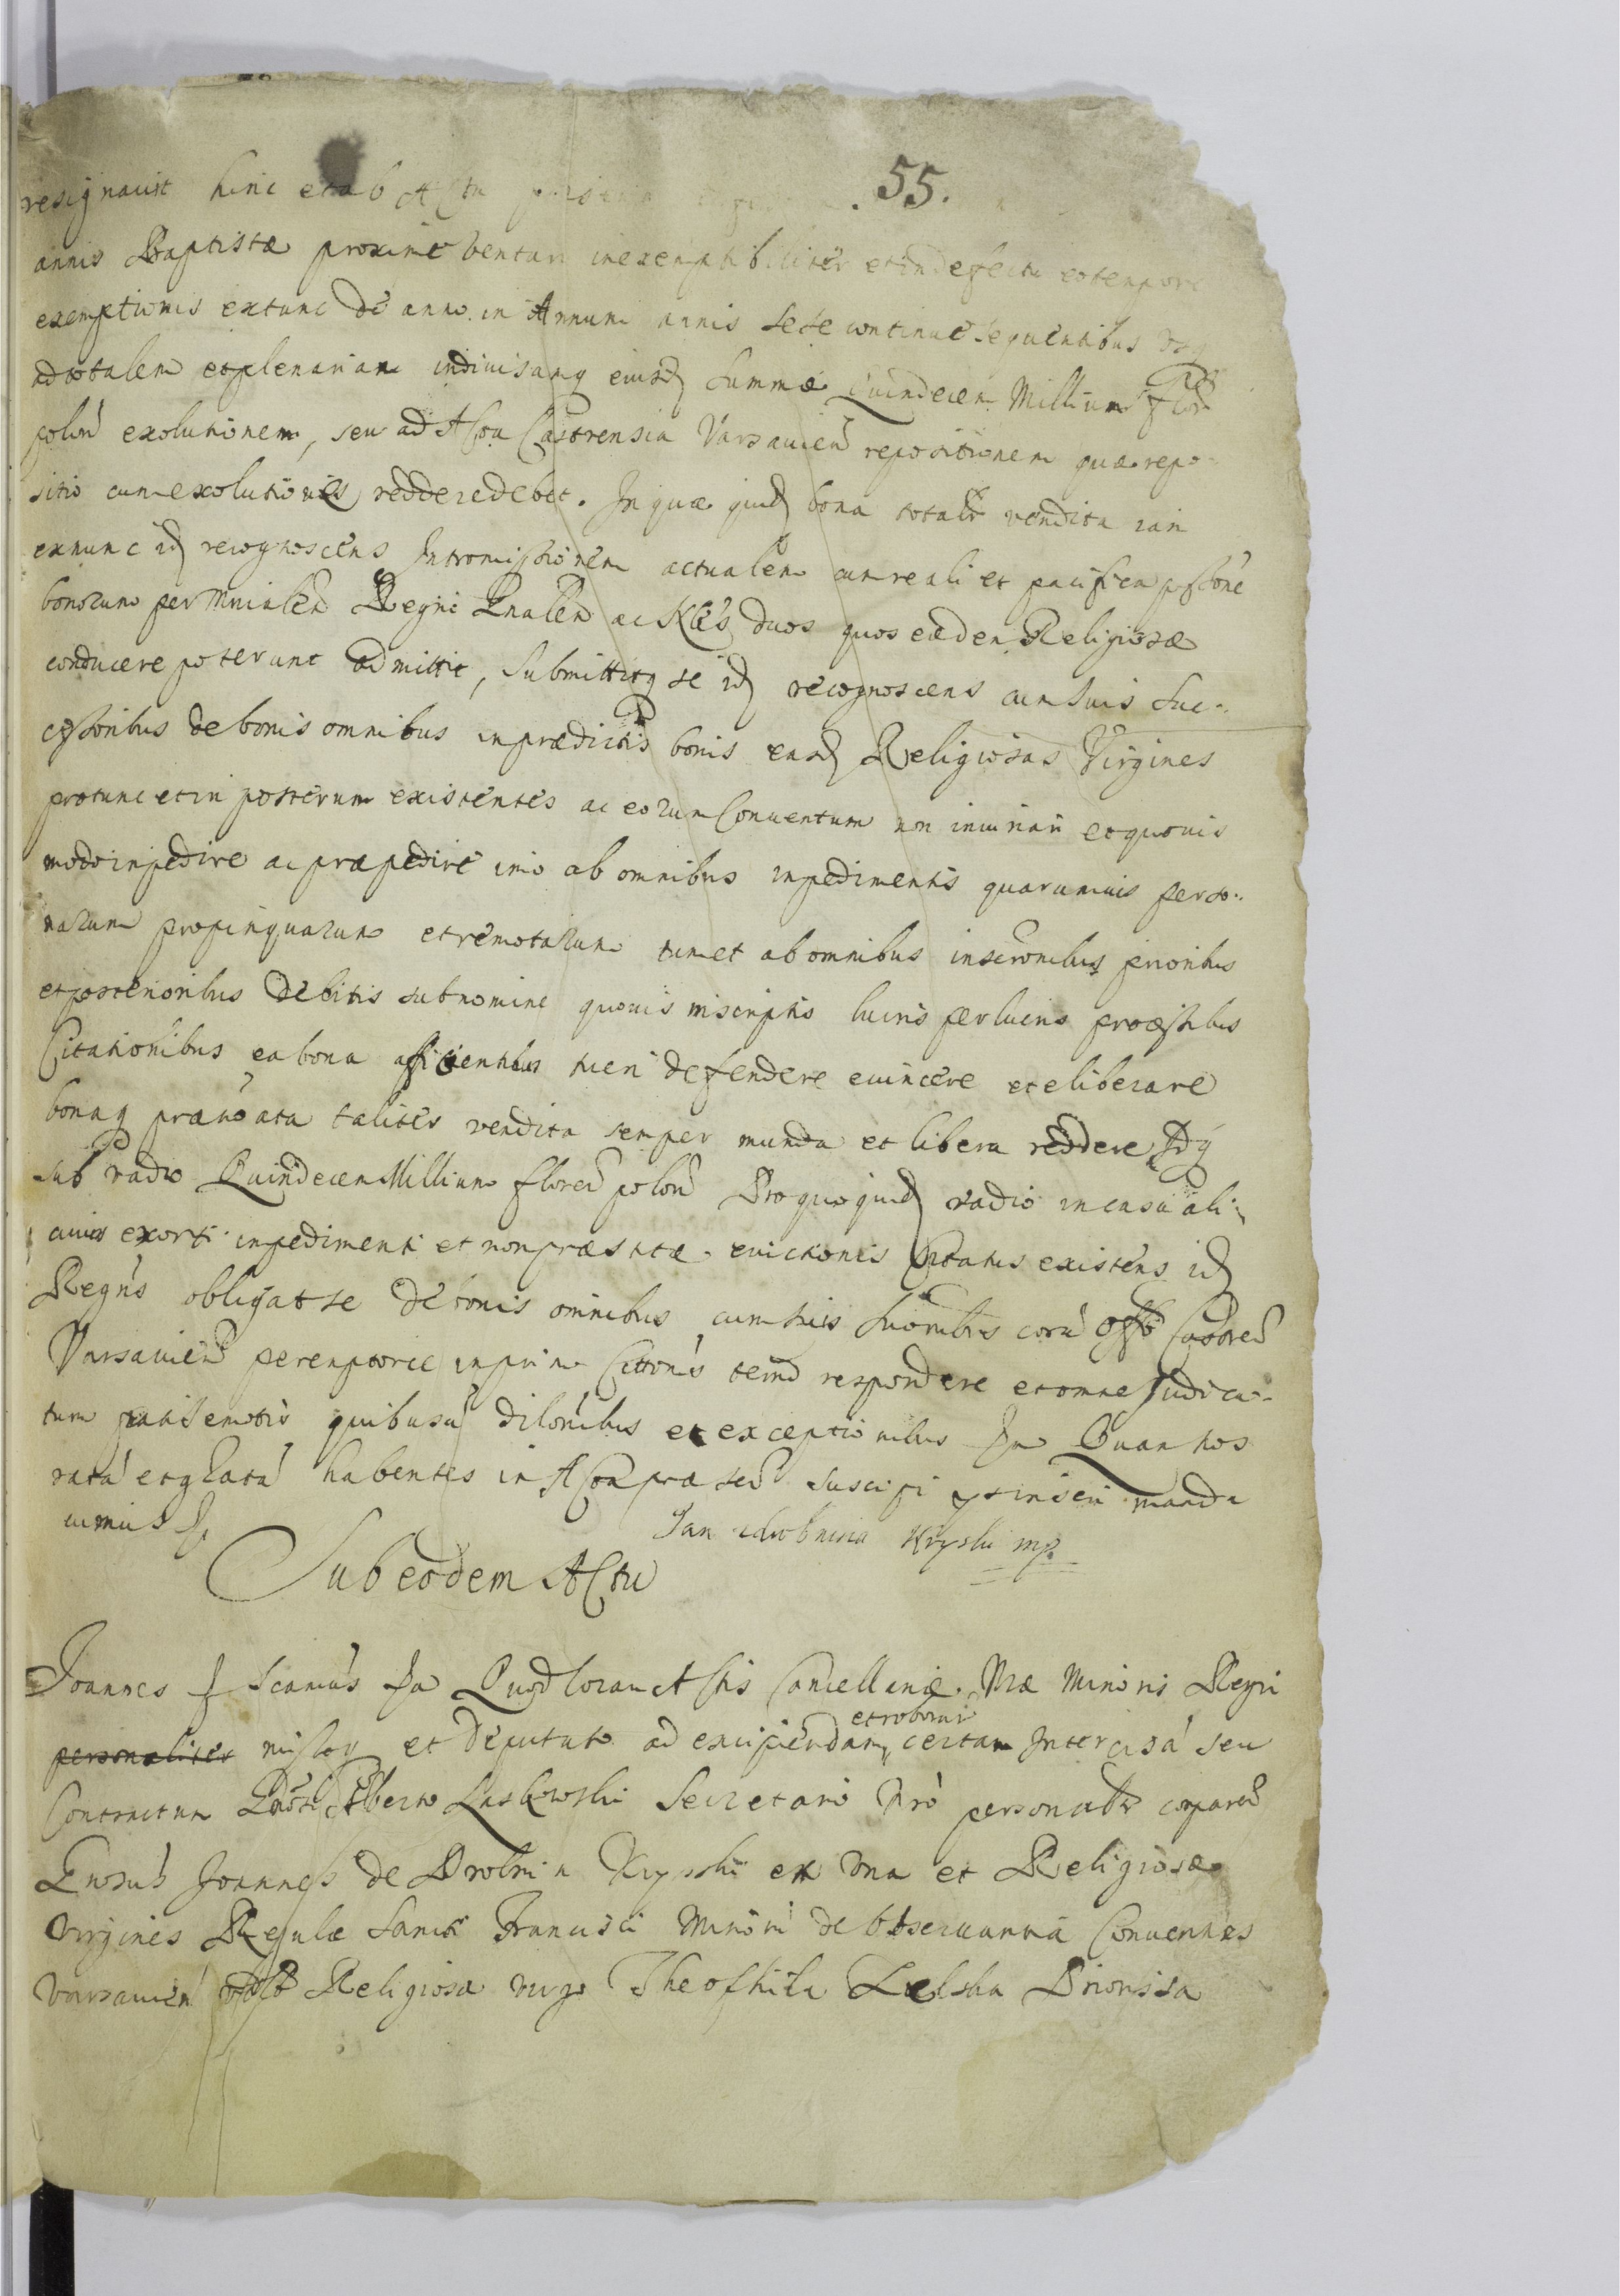 55.
resignavit hinc et ab Actu
annis Baptistæ proxime venturi inexemptibiliter et in defectu eo tempore
exemptionis extunc de anno in Annum annis sese continue sequentibus
ad totalem et plenariam indivisamq eiusd summæ Quindecem Millium flor
polon exolutionem, seu ad Acta Castrensia Varsavien repositionem quæ repo-
sitio cum exolutionis reddere debet. In quæ quid bona totalr vendita iam
exnunc id recognoscens Intromissionem actualem cum reali et pacifica pssone
bonorum per Mnialem Regni Gnalem ac Nbles duos quos eædem Religiosæ
conducere poterunt admittit, submittitq se id recognoscens cum suis suc-
cessoribus de bonis omnibus in prædictis bonis easd Religiosas Virgines
protunc et in posterum existentes ac eorum Conventum non iniuriari et quovis
modo inpedire ac præpedire imo ab omnibus inpedimentis quarumvis perso-
narum propinquarum et remotarum tum et ab omnibus inscronibus prioribus
et posterioribus debitis sub nomine quovis inscriptis lucris perlucris processibus
Citationibus ea bona afficientibus tueri defendere evincere et eliberare
bonaq præuoata taliter vendita semper munda et libera reddere Idq
sub vadio Quindecem Millium floren polon Pro quo quid vadio in casu ali-
cuius exorti inpedimenti et non præstitæ evictionis Citatus existens id
Regns obligat se de bonis omnibus cum suis suoribus cora Offo Castren
Varsavien peremptorie in primo Cittonis termo respondere et omne Judica-
tum pati semotis quibusu dilonibus et exceptionibus Jn Quam nos
rata et grata habentes in Acta præsen suscipi et inseri manda
vimus
Jan z Drobnina Kryski mp.
Sub eodem Actu
Joannes Scamus Quod coram Actis Cancellariæ Nræ Minoris Regni
personaliter missoq et deputato ad excipiendam et roborar certam Intercisa seu
Contractum Gnoso Alberto Laskowski Secretario Nro personalr comparen
Gnosus Joannes de Drobnin Kryski ex una et Religiosæ
Virgines Regulæ Sancti Francisci Minori de Observantia Conventus
Varsavien Religiosa virgo Theophila Lelska Priorissa